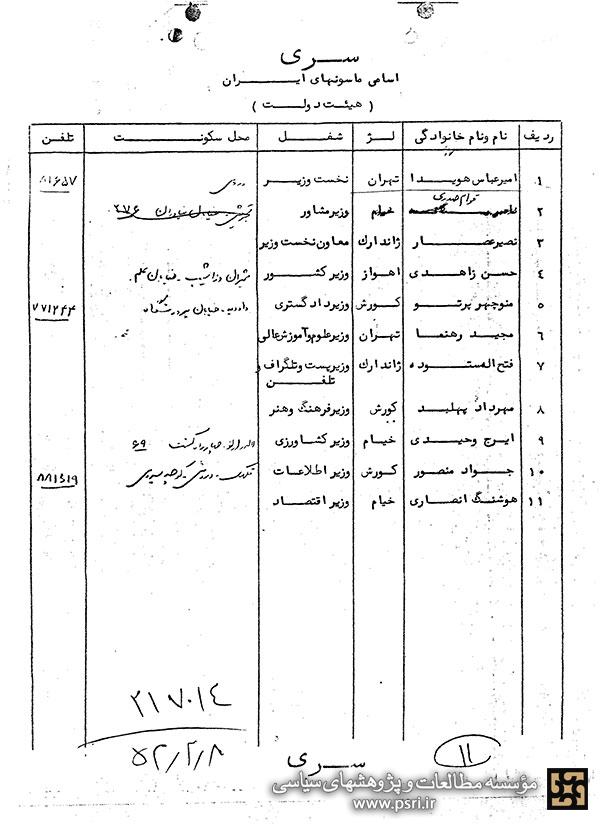 سری
اسامی ماسونهای ایران
( هیئت دولت )
ردیف نام ونام خانوادگی لژ شغل محل سکونت تلفن
۱ امیرعباس هویدا تهران نخست وزیر دروس ۸۱۶۵۷
۲ خیام وزیر مشاور
۳ نصیر عصار ژاندارک معاون نخست وزیر
۴ حسن زاهدی اهواز وزیر کشور
۵ منوچهر پرتو کورش وزیر دادگستری ۷۷۱۲۴۴
۶ مجید رهنما تهران وزیر علوم و آموزش عالی
۷ فتح اله ستوده ژاندارک وزیر پست وتلگراف و
تلفن
۸ مهرداد پهلبد کورش وزیر فرهنگ وهنر
۹ ایرج وحیدی خیام وزیر کشاورزی ۶۹
۱۰ جواد منصور کورش وزیر اطلاعات ۸۸۱۵۱۹
۱۱ هوشنگ انصاری خیام وزیر اقتصاد
۲۱۷۰۱۴
۵۲/۲/۸
سری
۱۱
مؤسسه مطالعات و پژوهشهای سیاسی
www.psri.ir